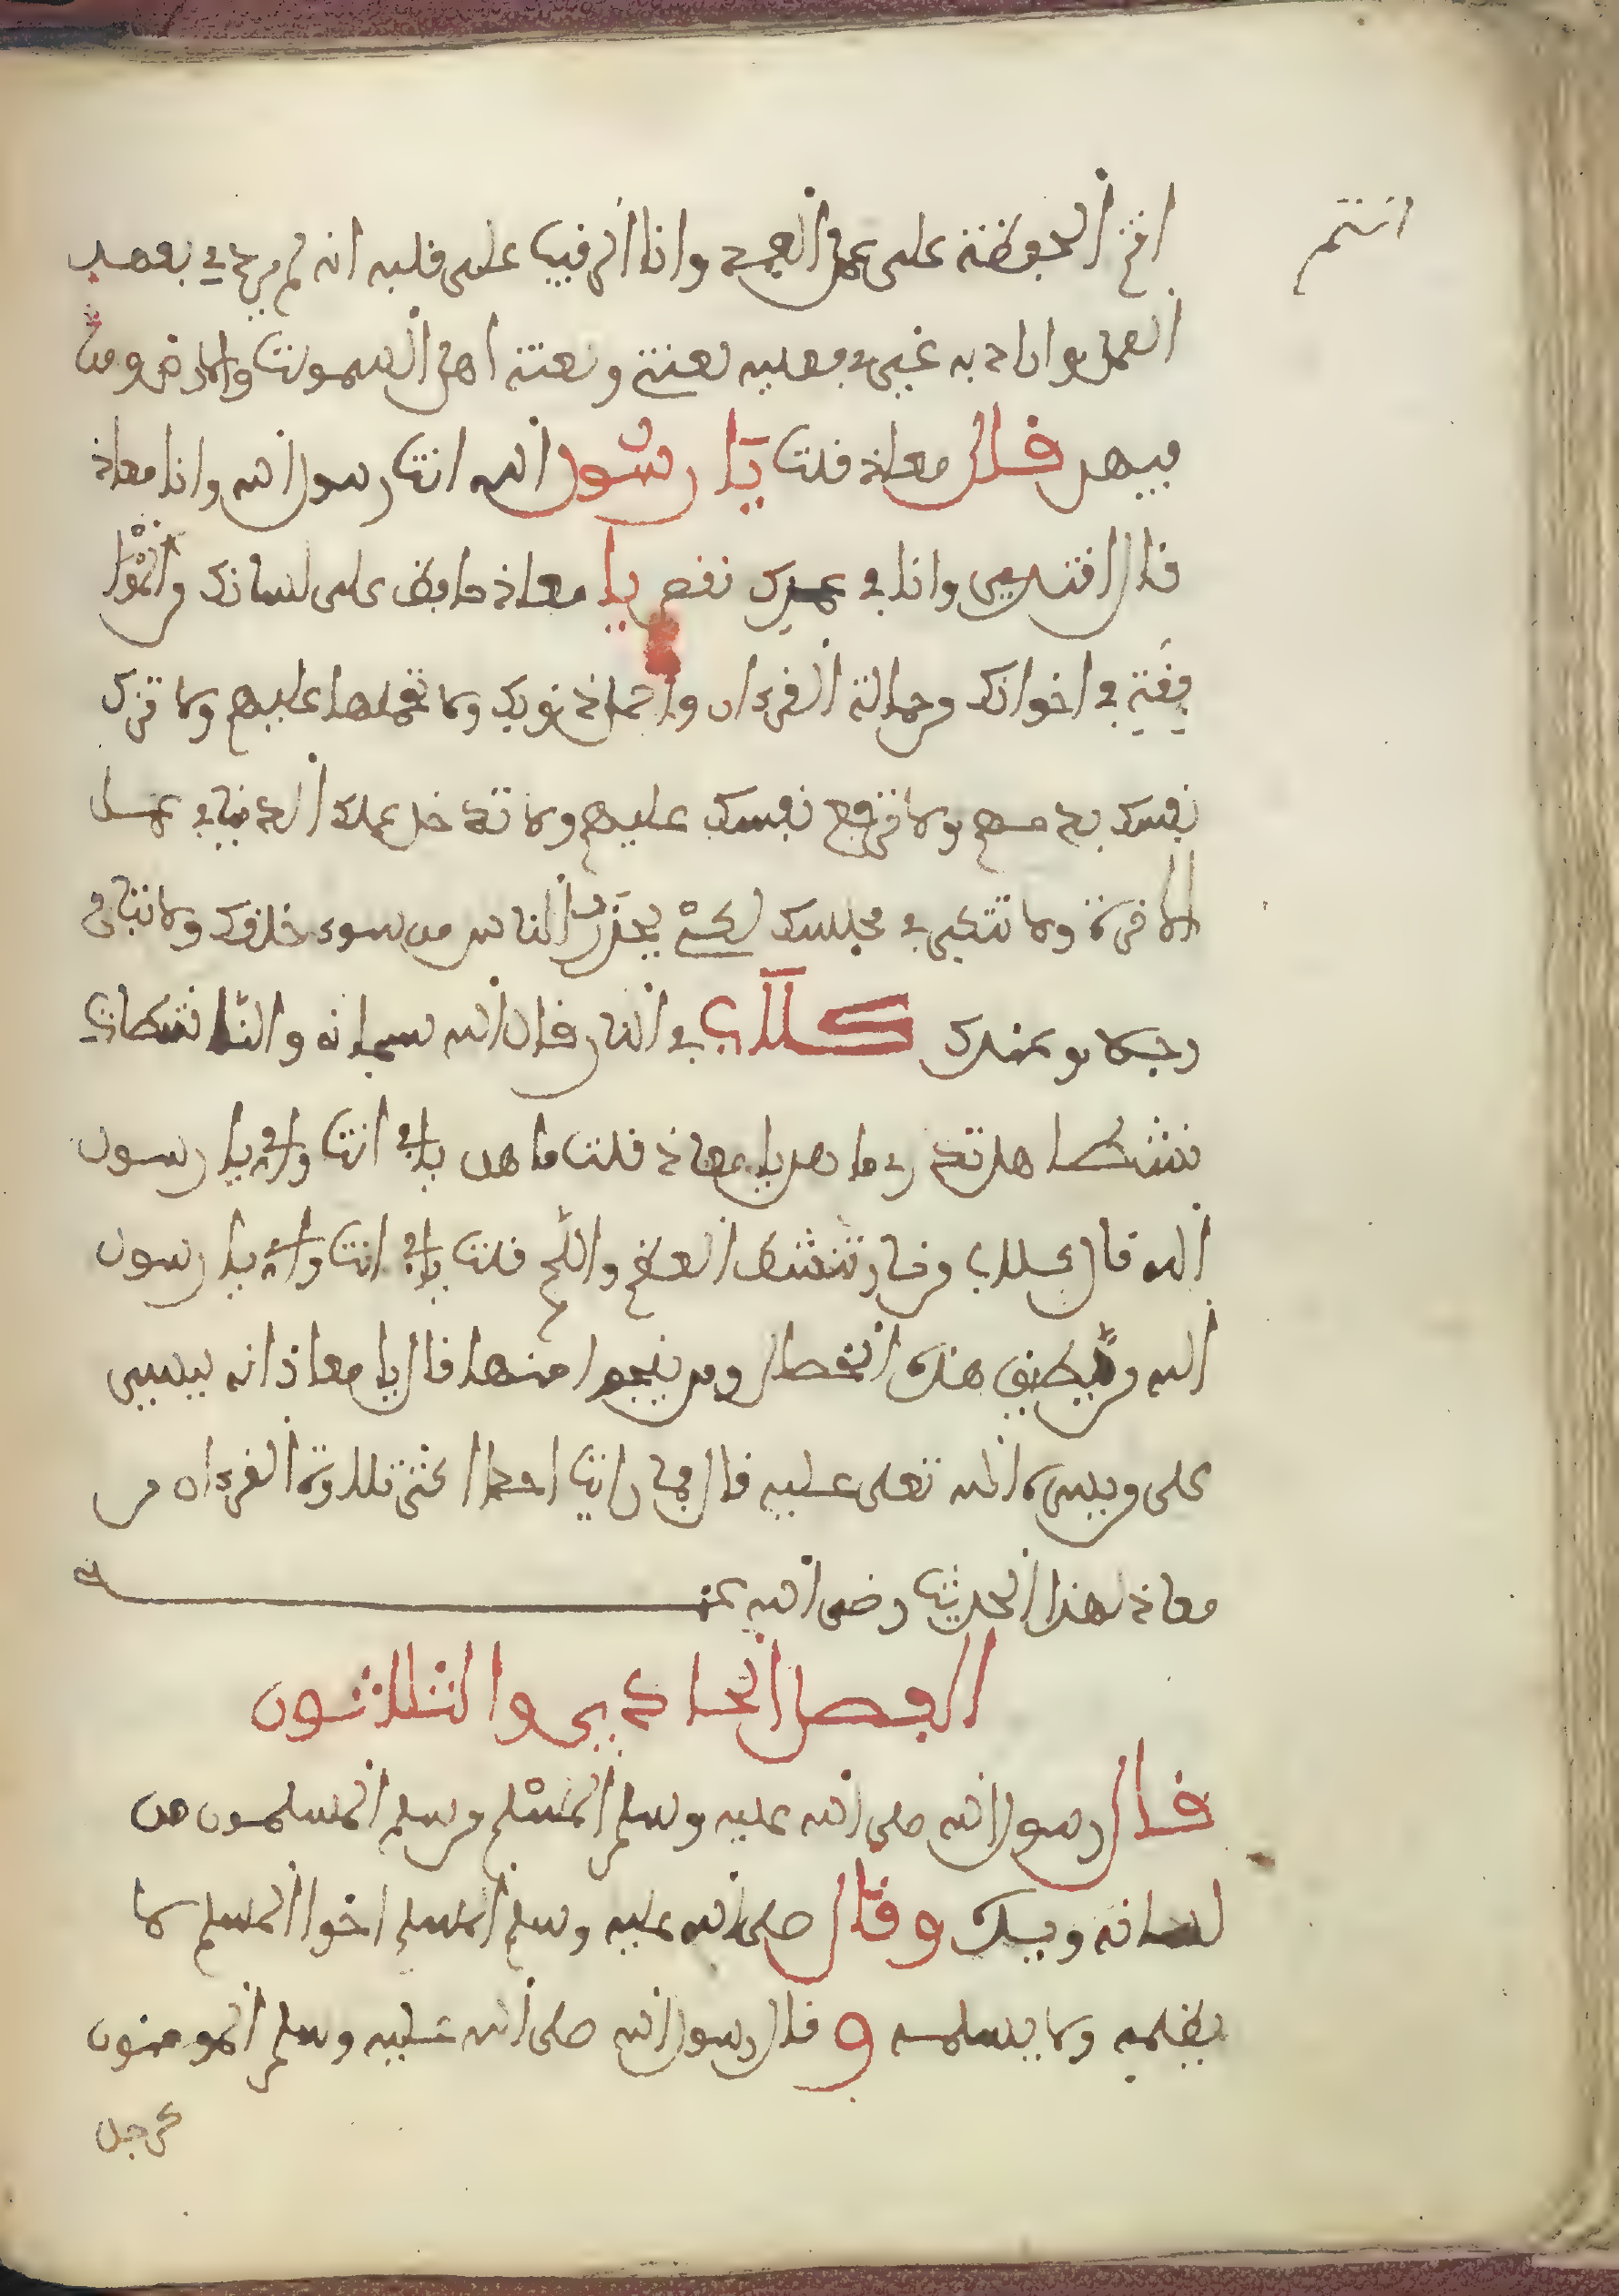 انتم
انتم الحفظة على عمل العبد وانا الرقيب على قلبه انه لم يردني بهذ
العمل واراد به غيري فعليه لعنتي ولعنة اهل السموت والارض ومن
فيهن قال معاذ قلت يا رسول الله انت رسول الله وانا معاذ
قال اقتد بي وانا في عملك نقص يا معاذ حافظ على لسانك من
في اخوانك وحملة القرءان واحمل ذنوبك ولا تحملها عليهم ولا تزك
نفسك بذمهم ولا ترفع نفسك عليهم ولا تدخل عمل الدنيا في عمل
الاخرة ولا تتكبر في مجلسك لكي يحذر الناس من سوء خلقك ولا تناج
رجلا وعندك كلاب في النار قال الله سبحانه والناشطات
نشطا هل تدري ما هن يا معاذ قلت ما هن بابي انت وامي يا رسول
الله قال كلاب في النار تنشط العظم واللحم قلت بابي انت وامي يا رسول
الله من يطيق هذه الخصال ومن ينجوا منها قال يا معاذ انه ليسير
على من يسره الله تعلى عليه قال فما رايت احدا اكثر تلاوة القرءان من
معاذ لهذا الحديث رضي الله عنه
الفصل الحادي والثلاثون
قال رسول الله صلى الله عليه وسلم المسلم من سلم المسلمون من
لسانه ويده وقال صلى الله عليه وسلم المسلم اخوا المسلم لا
يظلمه ولا يسلمه وقال رسول الله صلى الله عليه وسلم المومنون
كرجل